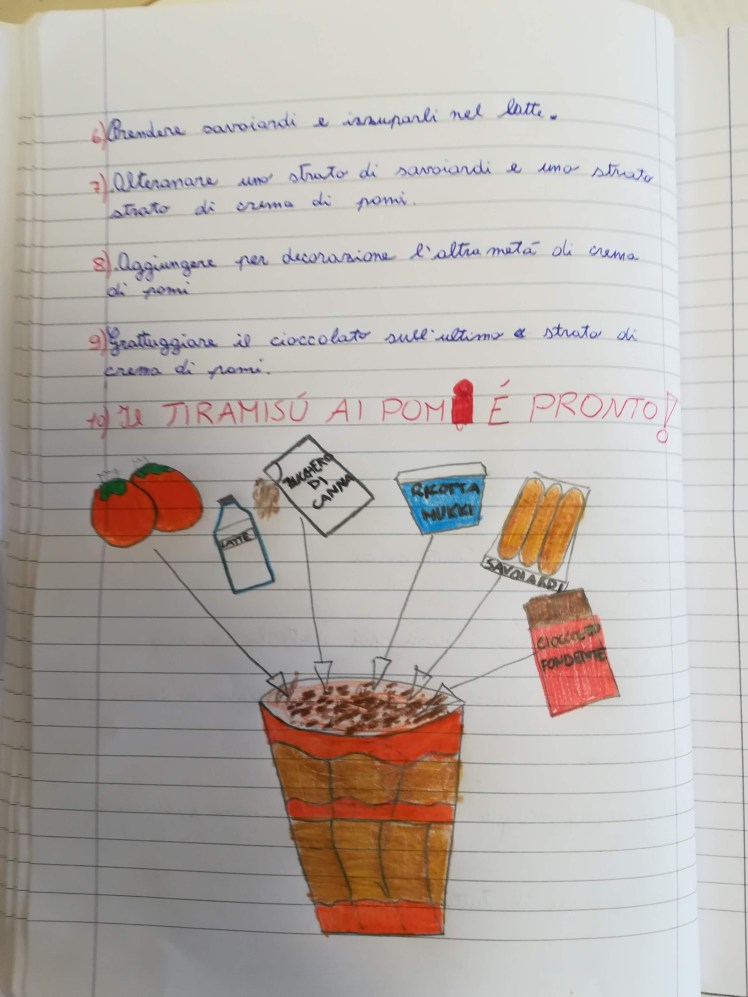 6) Prendere savoiardi e inzuparli nel latte.
7) Alteranare uno strato di savoiardi e uno strato
strato di crema di pomi.
8) Aggiungere per decorazione l'altra metá di crema
di pomi
9) Grattuggiare il cioccolato sull'ultimo strato di
crema di pomi.
10) Il TIRAMISÚ AI POMi É PRONTO!
ZUCCHERO
DI
CANNA
RICOTTA
MUKKI
LATTE
SAVOIARDI
CIOCCOLATO
FONDENTE